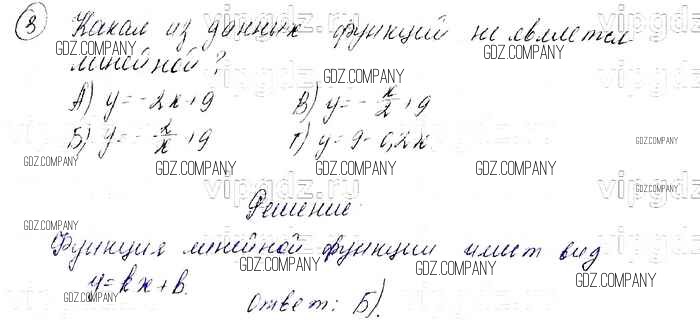 8) Какая из данных функций не является
линейной?
А) y = -2x+9   В) y = -x/2+9
Б) y = -2/x+9   Г) y = 9-0,2x
Решение
Функция линейной функции имеет вид
y = kx+b.
Ответ: Б).
GDZ.COMPANY
vipgdz.ru